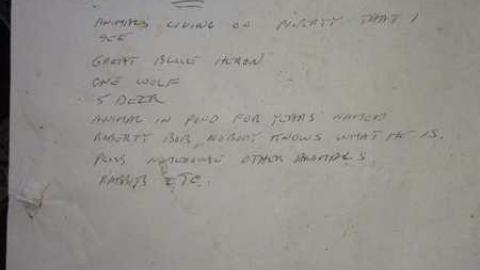 ANIMALS LIVING ON PROPERTY THAT I
SEE
GREAT BLUE HERON
ONE WOLF
5 DEER
ANIMAL IN POND FOR YEARS NAMED
BOB, NOBODY KNOWS WHAT HE IS.
PLUS NUMEROUS OTHER ANIMALS
RABBITS ETC.